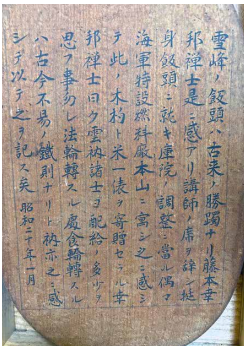 雪峰ノ飯頭ハ古来ノ勝躅ナリ藤本幸
邦禅士是ニ感アリ講師ノ席ヲ辞シ挺
身飯頭ニ就キ庫院ノ調整ニ当ル偶々
海軍特設燃料廠本山ニ寓シ之ニ感シ
テ此ノ木杓ト米一俵ヲ寄贈セラル幸
邦禅士曰ク雲衲諸士ヨ配給ノ多少ヲ
思フ事勿レ法輪轉スル處食輪轉スル
ハ古今不易ノ鐵則ナリト衲亦之ニ感
シテ以テ之ヲ記ス矣 昭和二十年一月